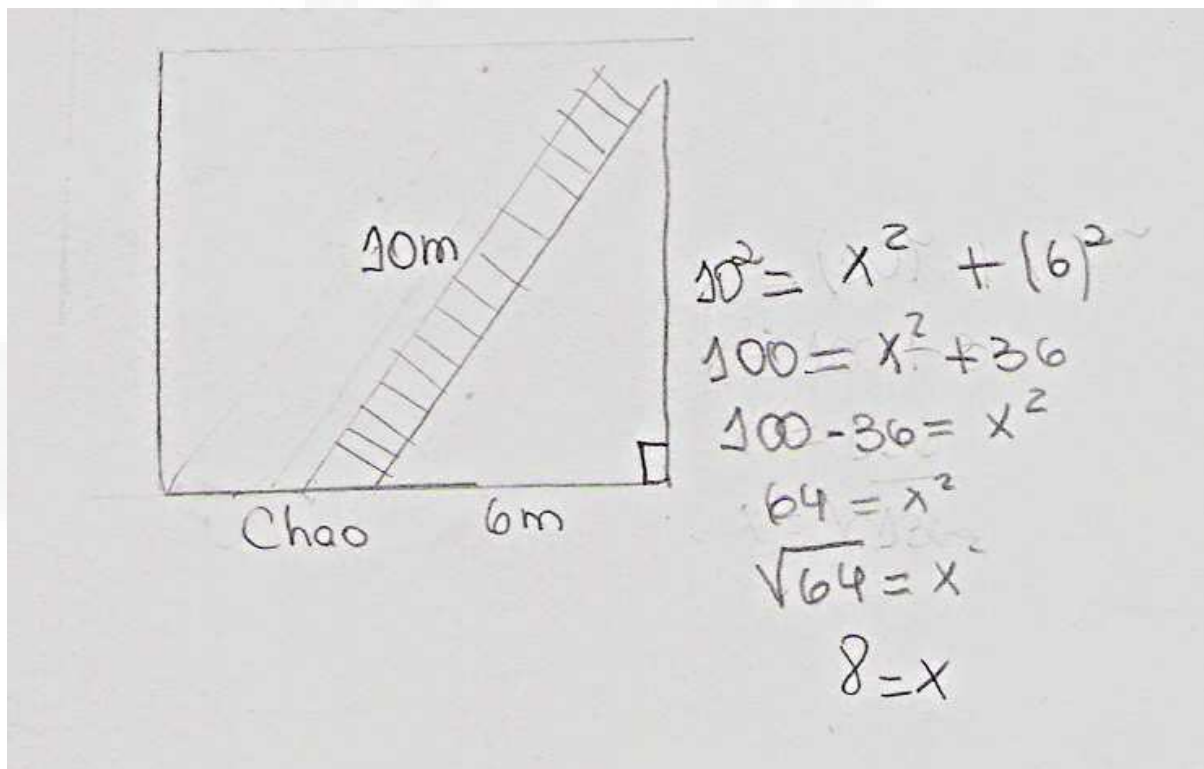 10m
Chao 6m
10² = x² + (6)²
100 = x² + 36
100 - 36 = x²
64 = x²
√64 = x
8 = x